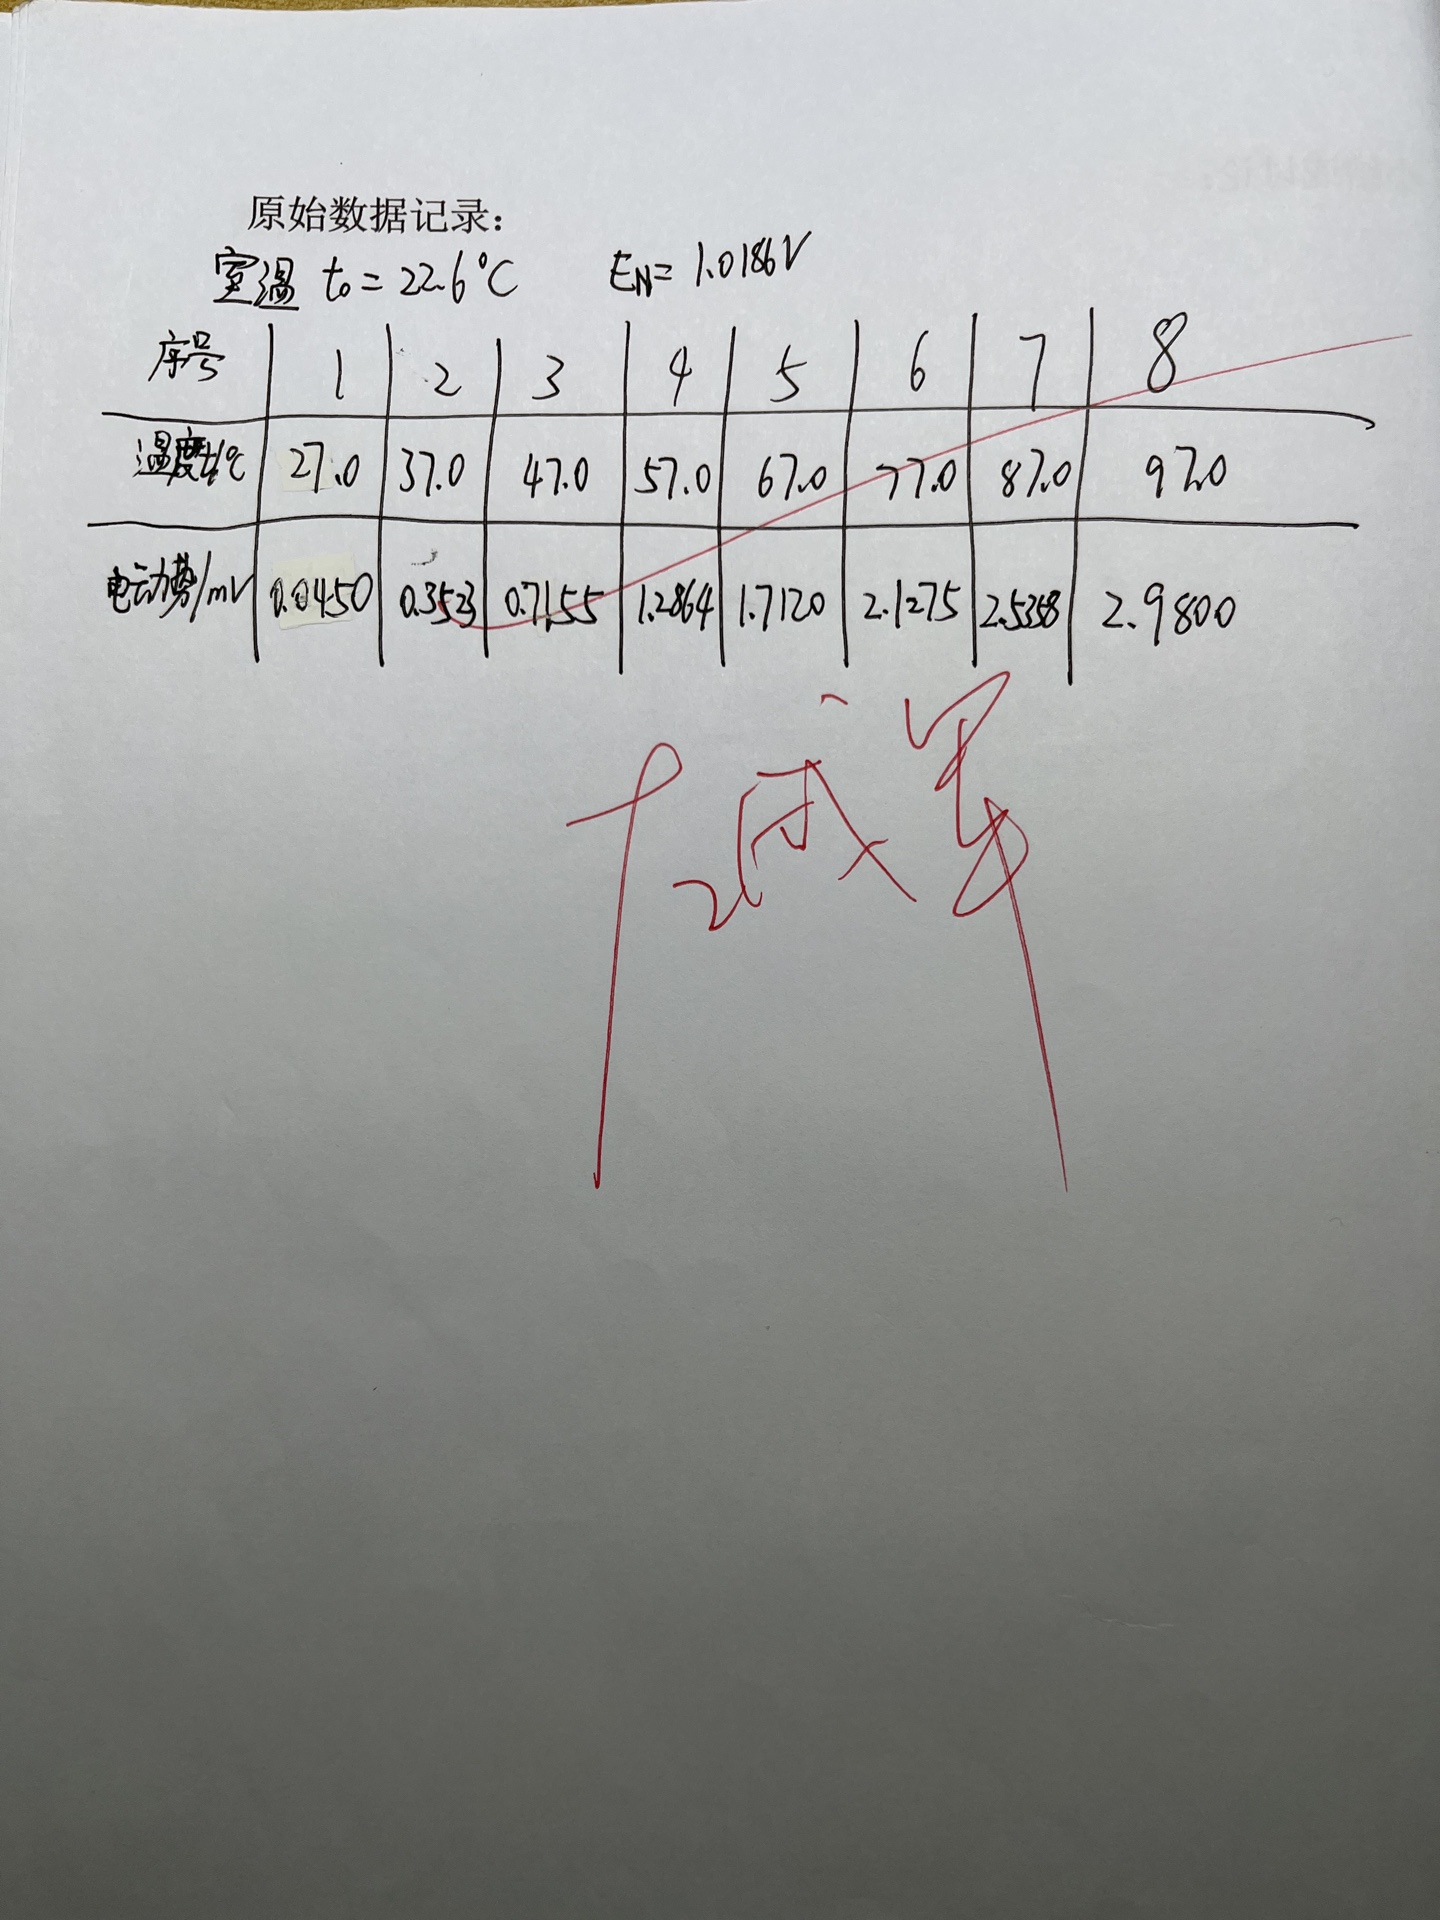 原始数据记录：
室温 t₀ = 22.6°C EN = 1.0186V
序号 1 2 3 4 5 6 7 8
温度t/°C 27.0 37.0 47.0 57.0 67.0 77.0 87.0 97.0
电动势/mV 0.0450 0.3523 0.7155 1.2864 1.7120 2.1275 2.5358 2.9800